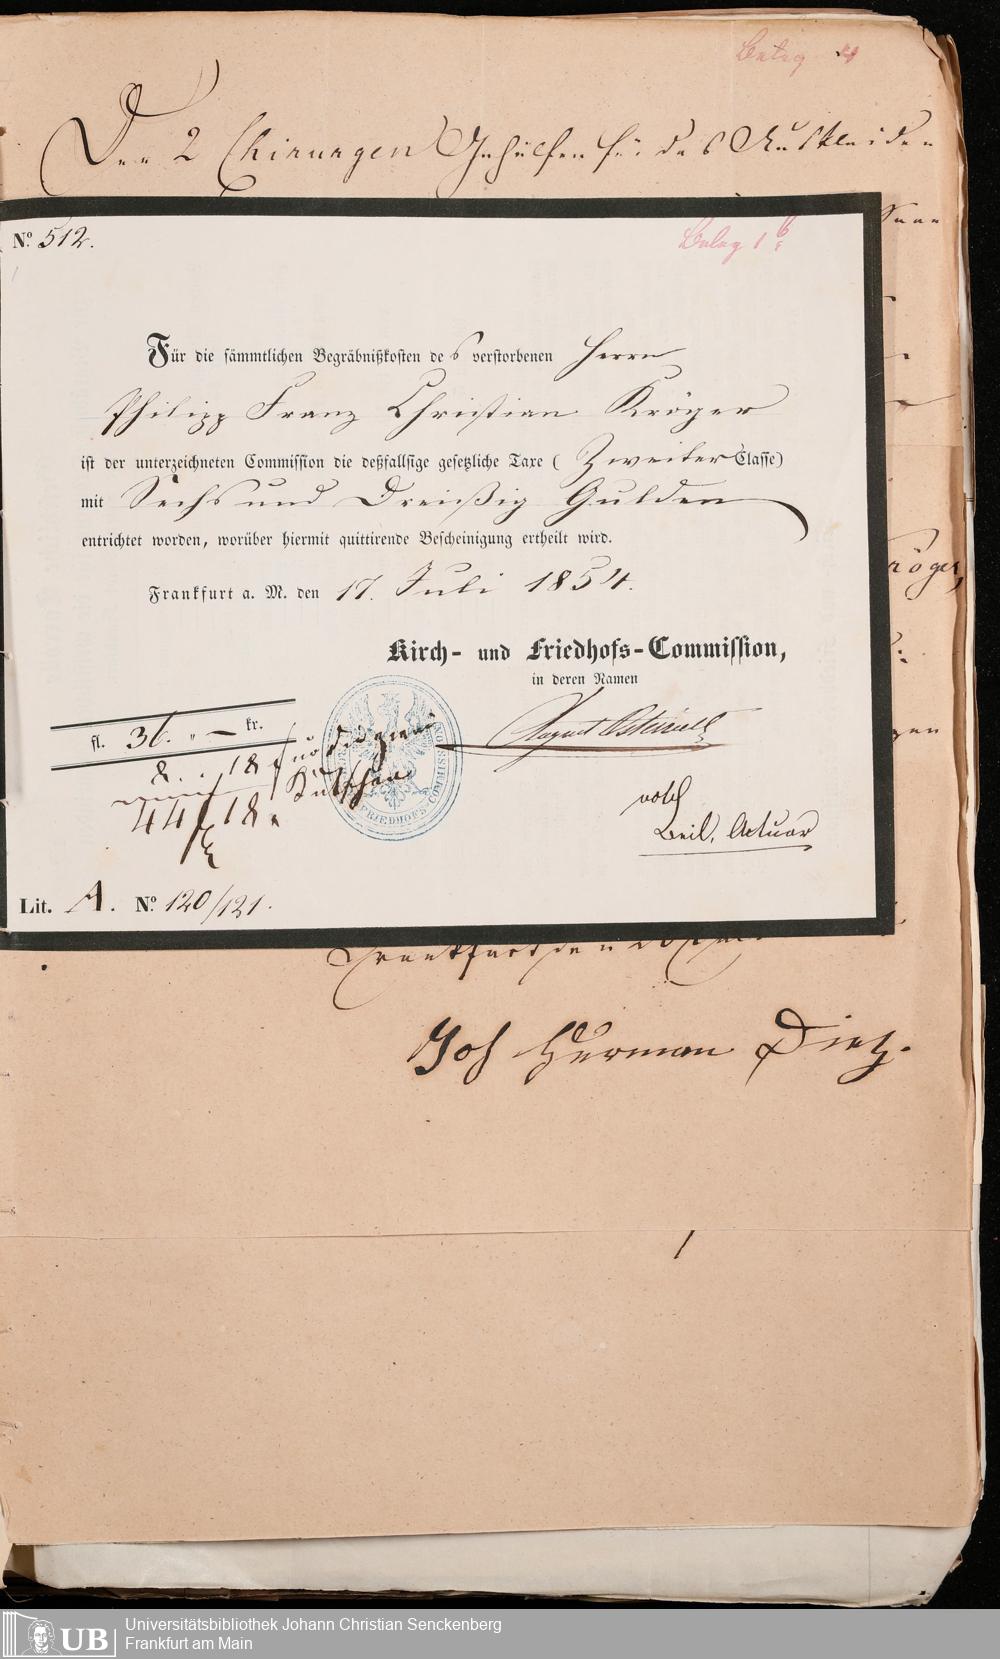 Beleg 4
Den 2 Chirurgen Gehülfen für das Auskleiden
No. 512.
Beleg 1 b
Für die sämmtlichen Begräbnißkosten des verstorbenen Herrn
Philipp Franz Christian Kröger
ist der unterzeichneten Commission die deßfallsige gesetzliche Taxe ( Zweiter Classe)
mit Sechs und Dreißig Gulden
entrichtet worden, worüber hiermit quittirende Bescheinigung ertheilt wird.
Frankfurt a. M. den 17. Juli 1854.
röger,
Kirch- und Friedhofs-Commission,
in deren Namen
fl. 36. " — kr.
8. . 18 für die zwei
Kutschen
44 f 18 x
FRIEDHOFS-COMMISSION
Beil. Actuar
Lit. A. No. 120/121.
Frankfurt den
Joh Herman Dietz.
UB
Universitätsbibliothek Johann Christian Senckenberg
Frankfurt am Main